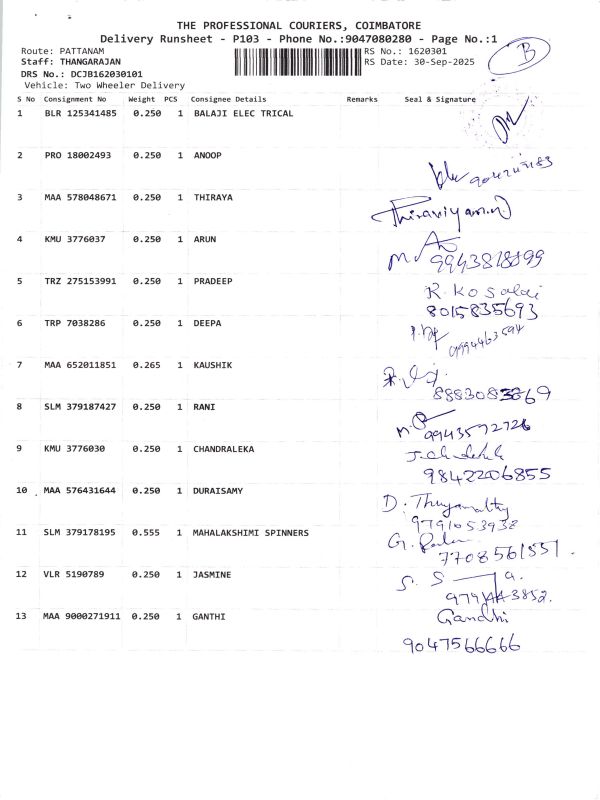 THE PROFESSIONAL COURIERS, COIMBATORE
Delivery Runsheet - P103 - Phone No.:9047080280 - Page No.:1
Route: PATTANAM RS No.: 1620301
Staff: THANGARAJAN RS Date: 30-Sep-2025
B
DRS No.: DCJB162030101
Vehicle: Two Wheeler Delivery
S No Consignment No Weight PCS Consignee Details Remarks Seal & Signature
1 BLR 125341485 0.250 1 BALAJI ELEC TRICAL
2 PRO 18002493 0.250 1 ANOOP
3 MAA 578048671 0.250 1 THIRAYA
4 KMU 3776037 0.250 1 ARUN
9943818199
5 TRZ 275153991 0.250 1 PRADEEP R. Kosalai
8015835693
6 TRP 7038286 0.250 1 DEEPA
7 MAA 652011851 0.265 1 KAUSHIK
8 SLM 379187427 0.250 1 RANI
9943572726
9 KMU 3776030 0.250 1 CHANDRALEKA
9842206855
10 MAA 576431644 0.250 1 DURAISAMY
9791053938
11 SLM 379178195 0.555 1 MAHALAKSHIMI SPINNERS
7708561551.
12 VLR 5190789 0.250 1 JASMINE
13 MAA 9000271911 0.250 1 GANTHI Gandhi
9047566666